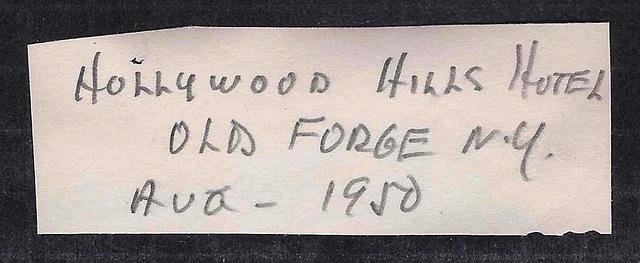 HOLLYWOOD HILLS HOTEL
OLD FORGE N.Y.
AUG - 1950